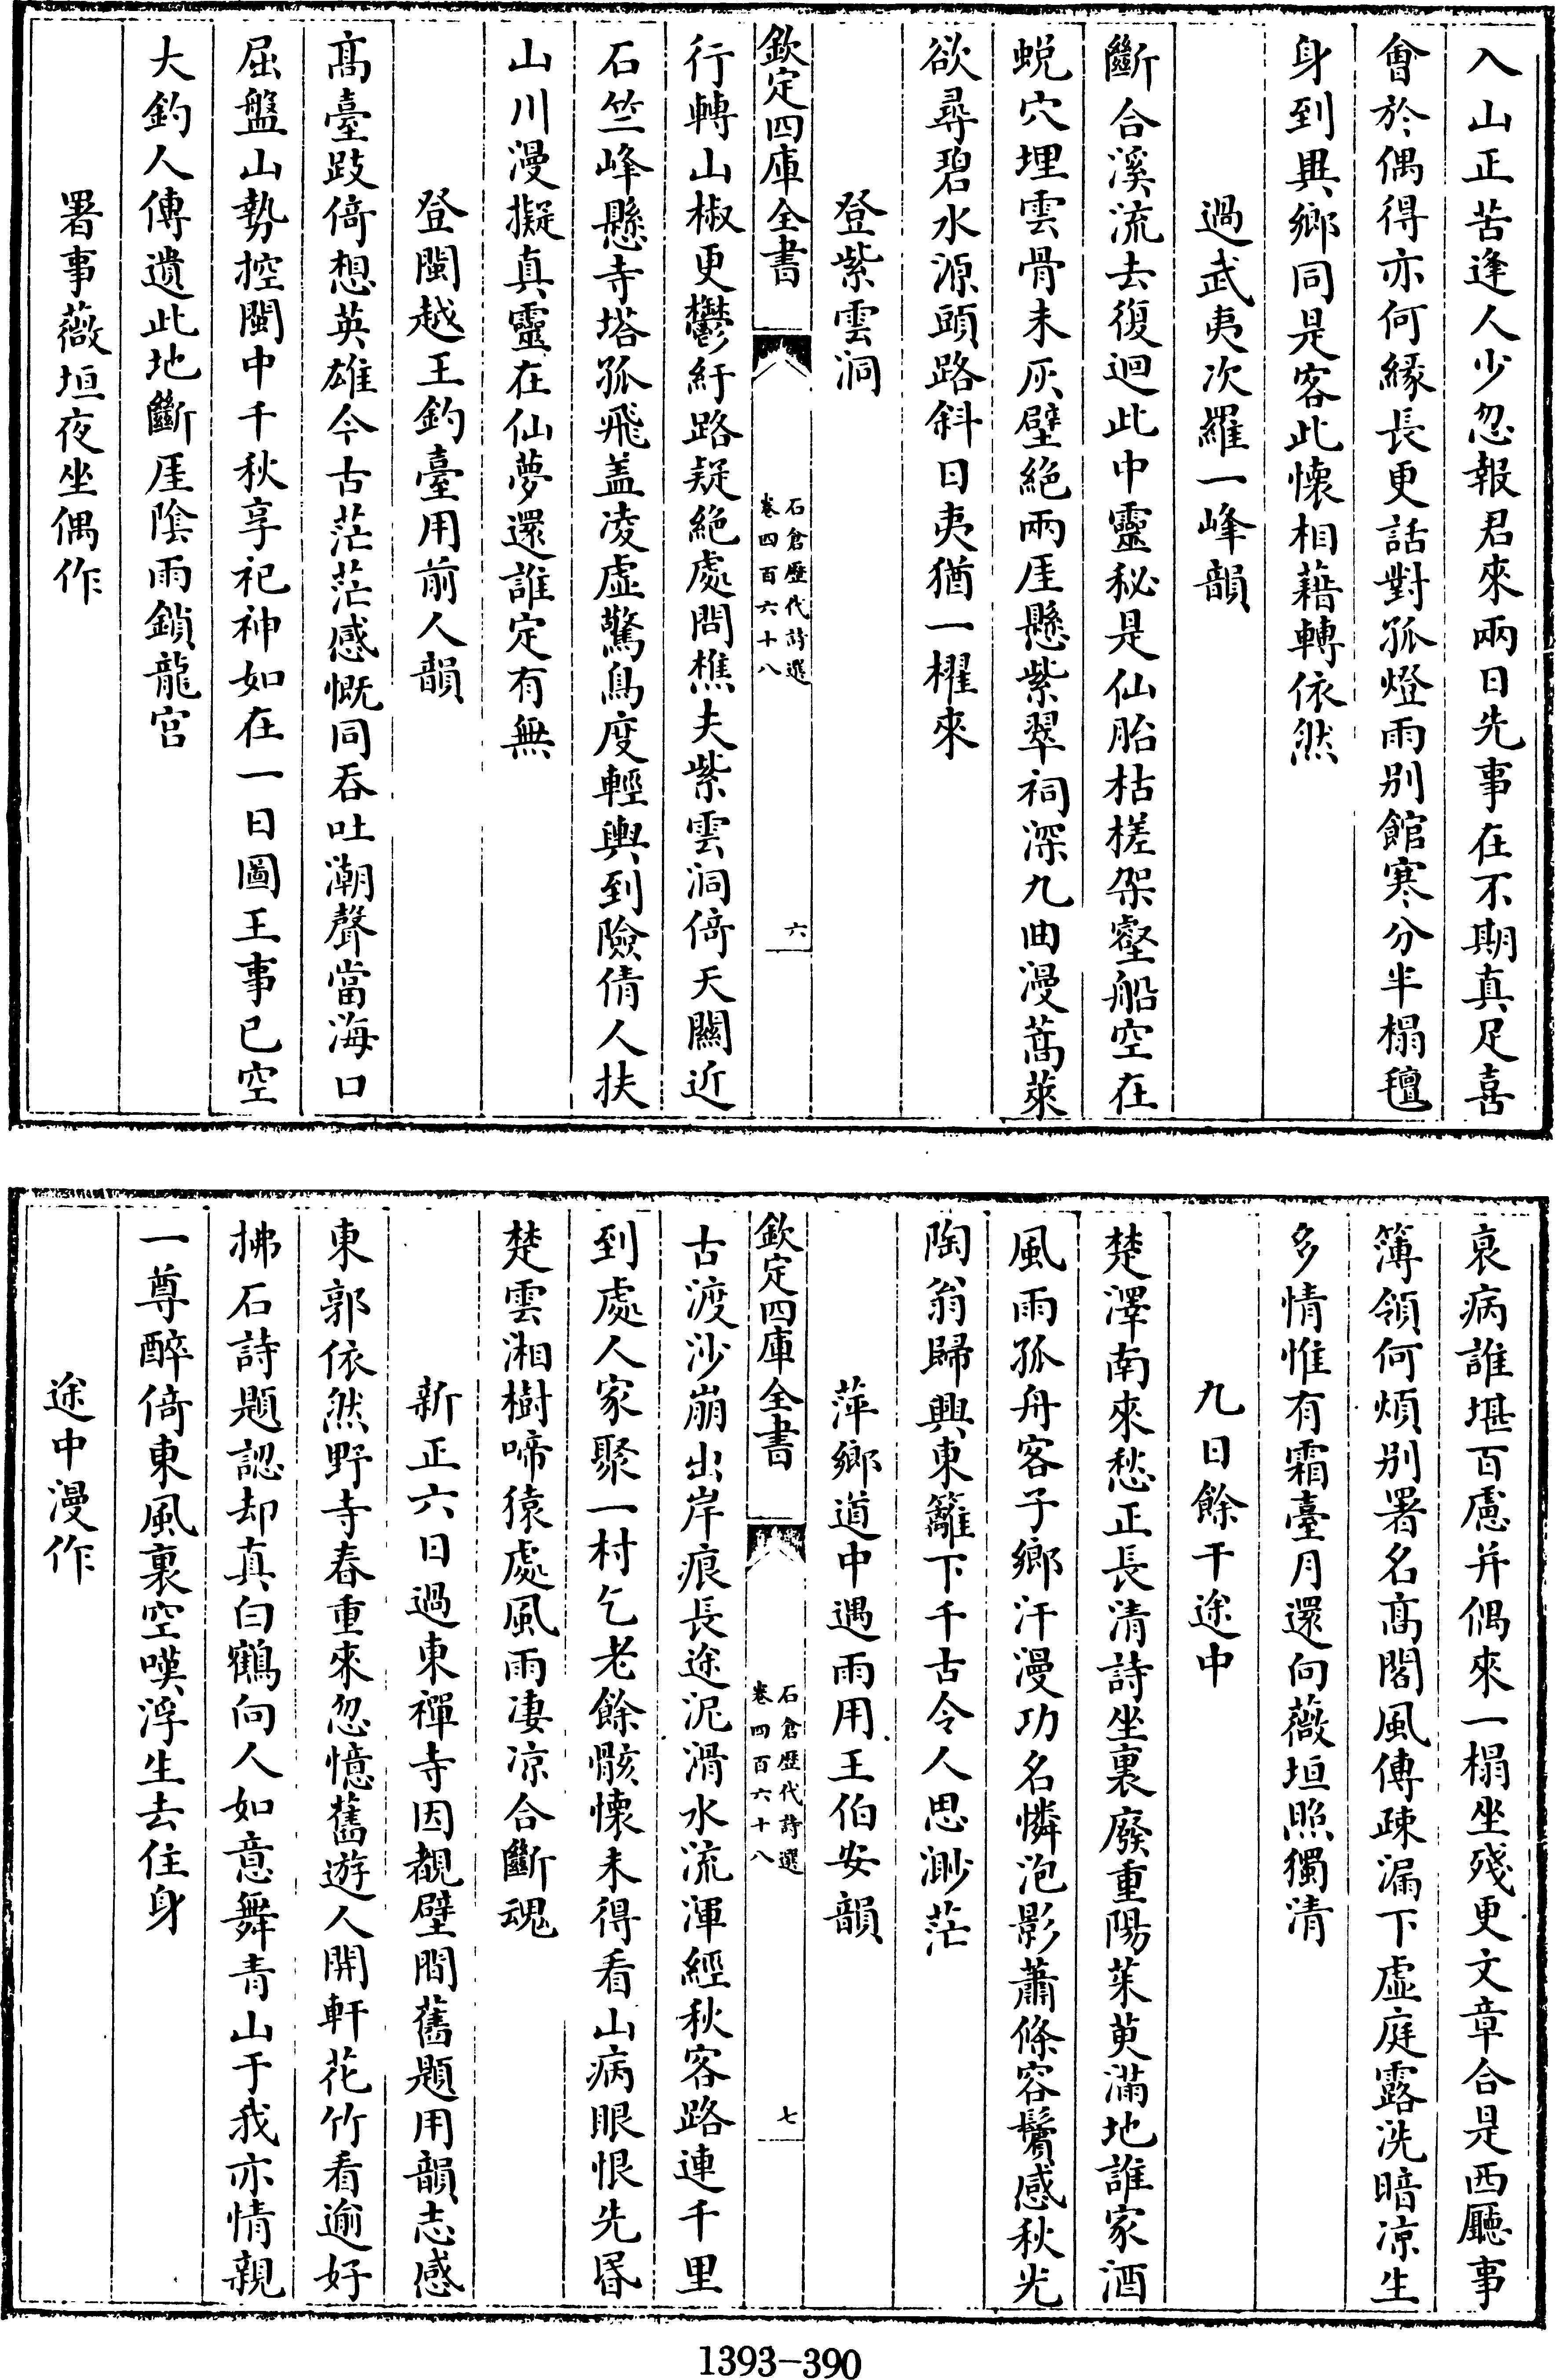 入山正苦逢人少忽報君來兩日先事在不期真足喜
會於偶得亦何緣長更話對孤燈雨别館寒分半榻氊
身到異鄉同是客此懷相藉轉依然
過武夷次羅一峰韻
斷合溪流去復迴此中靈秘是仙胎枯槎架壑船空在
蛻穴埋雲骨未灰壁絶兩厓懸紫翠祠深九曲漫蒿萊
欲尋碧水源頭路斜日夷猶一櫂來
登紫雲洞
欽定四庫全書
石倉歷代詩選
卷四百六十八
六
行轉山椒更鬱紆路疑絶處問樵夫紫雲洞倚天關近
石竺峰懸寺塔孤飛盖凌虛驚鳥度輕輿到險倩人扶
山川漫擬真靈在仙夢還誰定有無
登閩越王釣臺用前人韻
髙臺跂倚想英雄今古茫茫感慨同吞吐潮聲當海口
屈盤山勢控閩中千秋享祀神如在一日圖王事已空
大釣人傳遺此地斷厓陰雨鎖龍宮
署事薇垣夜坐偶作
衰病誰堪百慮并偶來一榻坐殘更文章合是西廳事
簿領何煩别署名髙閣風傳疎漏下虛庭露洗暗凉生
多情惟有霜臺月還向薇垣照獨清
九日餘干途中
楚澤南來愁正長清詩坐裏廢重陽茱萸滿地誰家酒
風雨孤舟客子鄉汗漫功名憐泡影蕭條容鬢感秋光
陶翁歸興東籬下千古令人思渺茫
萍鄉道中遇雨用王伯安韻
欽定四庫全書
石倉歷代詩選
卷四百六十八
七
古渡沙崩出岸痕長途泥滑水流渾經秋客路連千里
到處人家聚一村乞老餘骸懐未得看山病眼恨先昬
楚雲湘樹啼猿處風雨凄凉合斷魂
新正六日過東禪寺因覩壁間舊題用韻志感
東郭依然野寺春重來忽憶舊遊人開軒花竹看逾好
拂石詩題認却真白鶴向人如意舞青山于我亦情親
一尊醉倚東風裏空嘆浮生去住身
途中漫作
1393-390